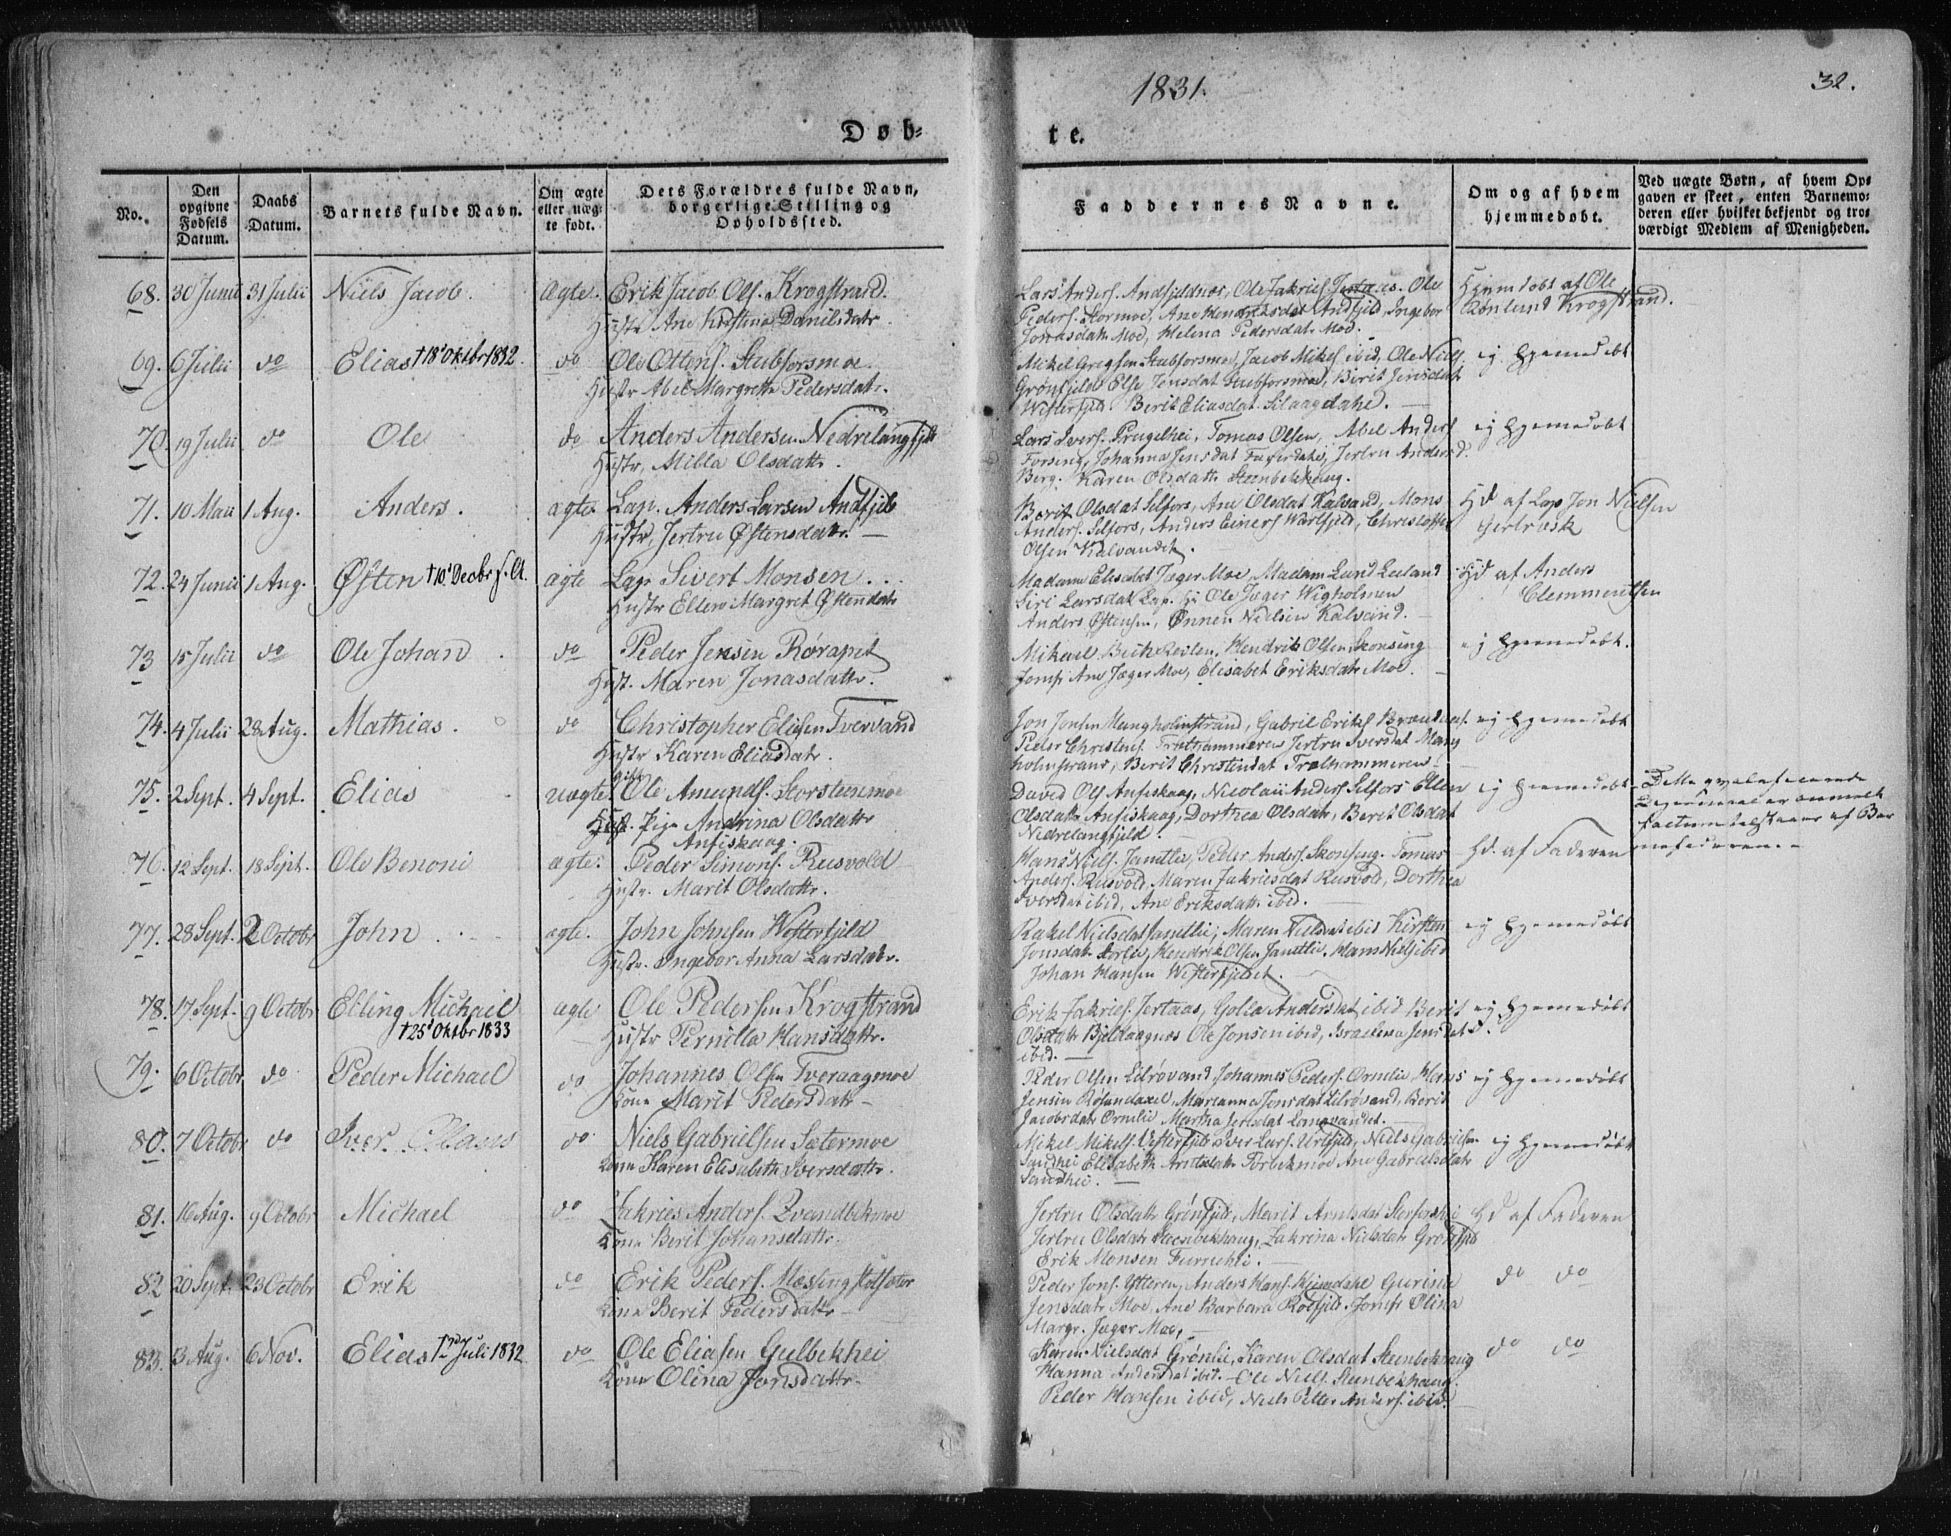 1831.
32.
Døb-
te.
No.
Den opgivne Fødsels Datum.
Daabs Datum.
Barnets fulde Navn.
Om ægte eller uægte født.
Dets Forældres fulde Navn, borgerlige Stilling og Opholdssted.
Faddernes Navne.
Om og af hvem hjemmedøbt.
Ved uægte Børn, af hvem Opgaven er skeet, enten Barnemoderen eller hvilket bekjendt og troværdigt Medlem af Menigheden.
68. 30 Junii 31 Julii Niels Jacob. Ægte. Erik Jacob Ols. Krogstrand.
Hustr Ane Kirstina Danilsdatr.
Lars Anders. Andfjeldnæs, Ole Jakries Jertaas. Ole
Peders. Stormoe, Ane Hendriksdat Andfjeld, Ingebor
Jonasdatr Moe, Helena Pedersdatr Moe.
Hjemdøbt af Ole
Rønlund Krogstrand.
69. 6 Julii do Elias † 18 Oktbr 1832 do Ole Ottens. Stubforsmoe
Hustr Abel Margrethe Pedersdatr.
Mikel Gregsen Stubforsmoe, Jacob Mikels ibid, Ole Niels
Grønfjeld Else Jensdat Stubforsmoe, Berit Jensdat
Westerfjeld. Berit Eliasdat
ej hjemmedøbt
70. 19 Julii do Ole do Anders Andersen Nedrelangfjeld
Hustr, Milla Olsdattr.
Lars Ivers. Prugelhei, Tomas Olsen, Abel Anders
Forseng, Johanna Jensdat
Berg. Karen Olsdattr Steenbekhaug.
ej hjemmedøbt
71. 10 Maii 1 Aug. Anders. ægte. Lap. Anders Larsen Andfjeld
Hustr, Jertru Østensdatr. —
Berit Olsdat Selfors, Ane Olsdat Kalvand, Mons
Anders. Selfors, Anders Einers Wartfjeld, Christoffer
Olsen Kalvandet.
Hd af Lap Jon Nielsen
72. 24 Junii 1 Aug. Østen † 10 Decbr s. A. ægte Lap Sivert Monsen
Hustr Ellen Margret Østensdatr
Madame Elisabet Jæger Moe, Madam Lund Leland
Siri Larsdat Lap. Ole Jæger Wigholmen
Anders Østensen, Ønnen Nielsen Kalvand.
Hd af Anders
Clemmentsen
73 15 Julii do Ole Johan do Peder Jensen Røraptet
Hust. Maren Jonasdattr.
Mikael Hendrik Olsen Skonseng
Jomfr Ane Jæger Moe, Elisabet Eriksdatr Moe.
ej hjemmedøbt.
74. 4 Julii 28 Aug. Mathias. do Christopher Eliesen Tvervand
Hustr Karen Eliasdatr.
Jon Jonsen Mangholmstrand, Gabriel Eriks
Peder Christens. Trælhammeren Jertru Iversdat Mang
holmstrand, Berit Christensdat Trælhammeren.
ej hjemmedøbt
75. 2 Sept. 4 Sept. Elias uægte. gift Ole Amunds. Storsteenmoe
Pige Andrina Olsdattr
Anfiskaag.
David Ols Anfiskaag, Nicolaii Anders Selfors Ellen
Olsdattr Anfiskaag, Dorthea Olsdatr, Berit Olsdat
Nedrelangfjeld.
ej hjemmedøbt
76. 12 Sept. 18 Sept. Ole Benoni ægte. Peder Simons. Rusvold
Hustr. Marit Olsdattr.
Hans Niels. Jamtlie, Peder Anders. Skonseng. Tomas
Anders. Rusvold, Maren Jakriesdat Rusvold, Dorthea
Iversdat ibid, Ane Eriksdatr ibid.
Hd. af Faderen
77. 28 Sept. 2 Octobr John. ægte. John Johnsen Westerfjeld
Hustr. Ingebor Anna Larsdatr.
Rakel Nielsdat Jamtlie, Maren Nielsdat ibid Kirsten
Jonsdatr Storlie, Hendrik Olsen Jamtlie, Hans Niels ibid
Johan Hansen Westerfjeldet.
ej hjemmedøbt
78. 17. Sept. 9 Octobr Elling Michael † 25 Oktbr 1833 ægte Ole Pedersen Krogstrand
Hustr Pernilla Hansdattr.
Erik Jakries. Jertaas, Golla Andersdat ibid Berit
Olsdattr Bjeldaagnæs Ole Jonsen ibid, Israelena Jensdat
ibid.
ej hjemmedøbt
79. 6 Octobr do Peder Michael do Johannes Olsen Tveraagmoe
Kone Marit Pedersdatr —
Peder Olsen Lilrøvand Johannes Peders. Ormlie, Hans
Jensen Marianna Jonsdat Lilrøvand, Berit
Jacobsdatr Ormlie Martha Jensdat Langvandet.
ej hjemmedøbt
80. 7 Octobr do Iver do Niels Gabrielsen Sætermoe
Kone Karen Elisabeth Iversdattr.
Mikel Mikels Westerfjeld Iver Lars. Urtfjeld, Niels Gabrielsen
Sandhei Elisabeth Arntsdatr Forbekmoe Ane Gabrielsdatr
Sandhei.
ej hjemmedøbt
81. 16 Aug. 9 Octobr Michael do Jakries Anders. Qvandbekmoe
Kone Berit Johansdattr.
Jertru Olsdatr Grønfjeld, Marit Arntsdat Storforshei
Jertru Olsdatr Steenbekhaug, Jakrina Nielsdatr Grønfjeld
Erik Monsen Furuhei.
Hd af Faderen
82 20 Sept. 23 Octobr Erik do Erik Peders. Mæsingsletsæter
Kone Berit Pedersdatr —
Peder Jons. Ytteren, Anders Hans. Gurina
Jensdatr Moe, Ane Barbara Jomfr Olina
Margr. Jæger Moe.
do do
83. 3 Aug. 6 Nov. Elias † Juli 1832 do Ole Eliasen Gulbekhei
Kone Olina Jonsdattr.
Karen Nielsdat Grønlie, Karen Olsdat Steenbekhaug
Hanna Andersdat ibid. — Ole Niels. Steenbekhaug
Peder Hansen ibid, Niels Peter Anders. ibid.
do do